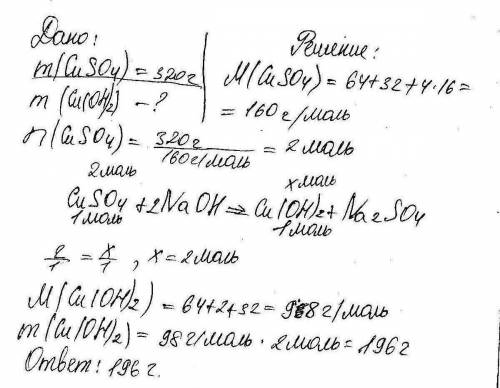 Дано:
m(CuSO4) = 320г
m(Cu(OH)2) - ?
Решение:
M(CuSO4) = 64+32+4·16=
= 160г/моль
n(CuSO4) = 320г / 160г/моль = 2моль
2моль xмоль
CuSO4 + 2NaOH ⇒ Cu(OH)2 + Na2SO4
1моль 1моль
2/1 = x/1 , x = 2моль
M(Cu(OH)2) = 64+2+32 = 98г/моль
m(Cu(OH)2) = 98г/моль · 2моль = 196г
Ответ: 196г.